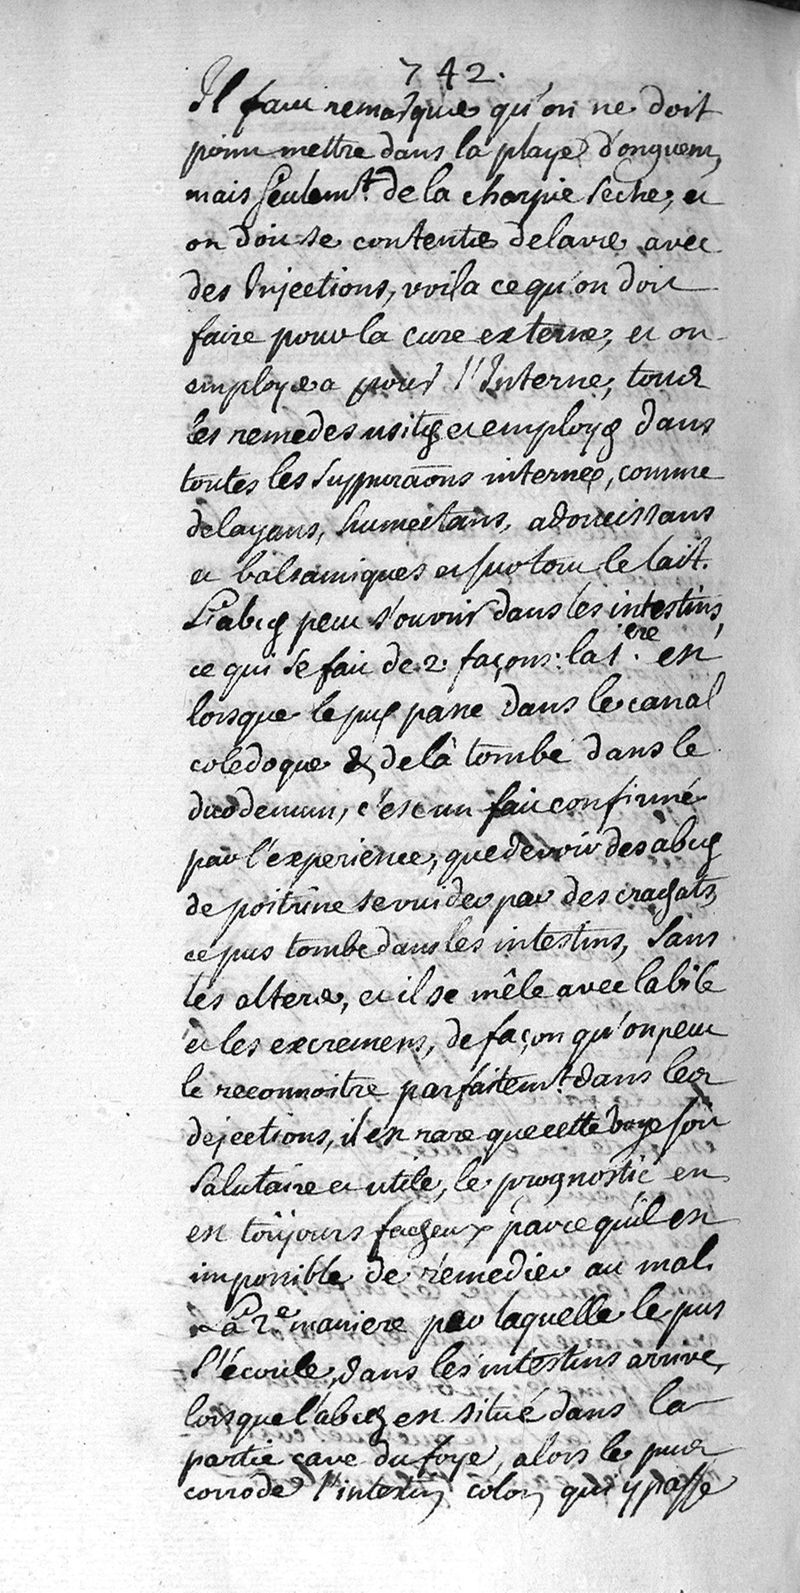 742.
Il faut remarquer qu'on ne doit
point mettre dans la playe d'onguent,
mais seulemt. de la charpie seche, et
on doit se contenter de laver avec
des Injections, voila ce qu'on doit
faire pour la cure externe, et on
employera pour l'Interne, tous
les remedes usités et employés dans
toutes les suppuraõns internes, comme
delayans, humectans, adoucissans
et balsamiques et surtout le lait.
L'abcés peut s'ouvrir dans les intestins,
ce qui se fait de 2. façons: la 1.ere est
lorsque le pus passe dans le canal
coledoque & delà tombe dans le
duodenum, c'est un fait confirmé
par l'experience, que de voir des abcés
de poitrine se vuider par des crachats,
ce pus tombe dans les intestins, sans
les alterer, et il se mêle avec la bile
et les excremens, de façon qu'on peut
le reconnoitre parfaitemt. dans les
dejections, il est rare que cette voye soit
salutaire et utile, le prognostic en
est toûjours facheux parce qu'il est
impossible de remedier au mal.
La 2.e maniere par laquelle le pus
s'écoule, dans les intestins arrive,
lorsque l'abcés est situé dans la
partie cave du foye, alors le pus
corode l'intestin colon qui y passe